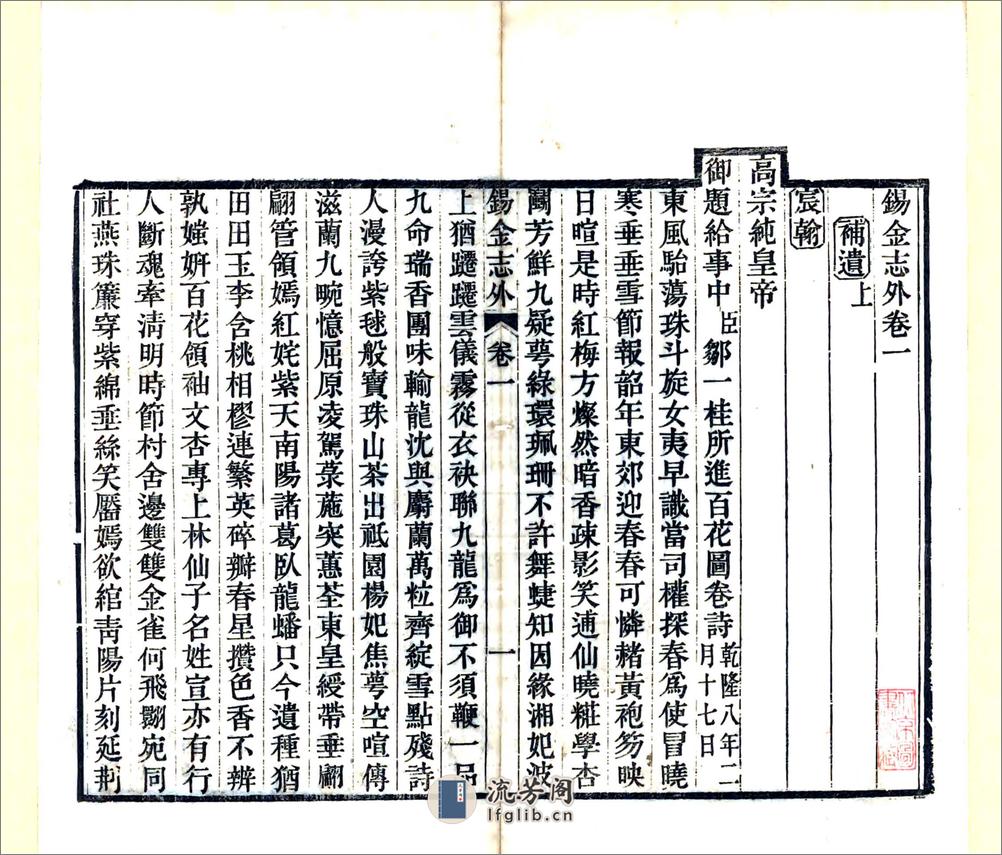 錫金志外卷一
補遺上
宸翰
高宗純皇帝
御題給事中臣鄒一桂所進百花圖卷詩乾隆八年二月十七日
東風駘蕩珠斗旋女夷早讖當司權探春爲使冒曉
寒垂垂雪節報韶年東郊迎春春可憐赭黃袍笏映
日暄是時紅梅方燦然暗香疎影笑逋仙曉糚學杏
鬬芳鮮九疑萼綠環珮珊不許舞蜨知因緣湘妃波
錫金志外 卷一 一
上猶躚躚雲儀霧從衣袂聯九龍爲御不須鞭一品
九命瑞香團味輸龍沈與麝蘭萬粒齊綻雪點殘詩
人漫誇紫毬般寶珠山茶出祗園楊妃焦萼空喧傳
滋蘭九畹憶屈原凌駕菉葹突蕙荃東皇綬帶垂翩
翩管領嫣紅姹紫天南陽諸葛臥龍蟠只今遺種猶
田田玉李含桃相樛連繁英碎瓣春星攢色香不辨
孰媸妍百花領袖文杏專上林仙子名姓宣亦有行
人斷魂牽淸明時節村舍邊雙雙金雀何飛翾宛同
社燕珠簾穿紫綿垂絲笑靨嫣欲綰靑陽片刻延荆
流芳阁
lfglib.cn